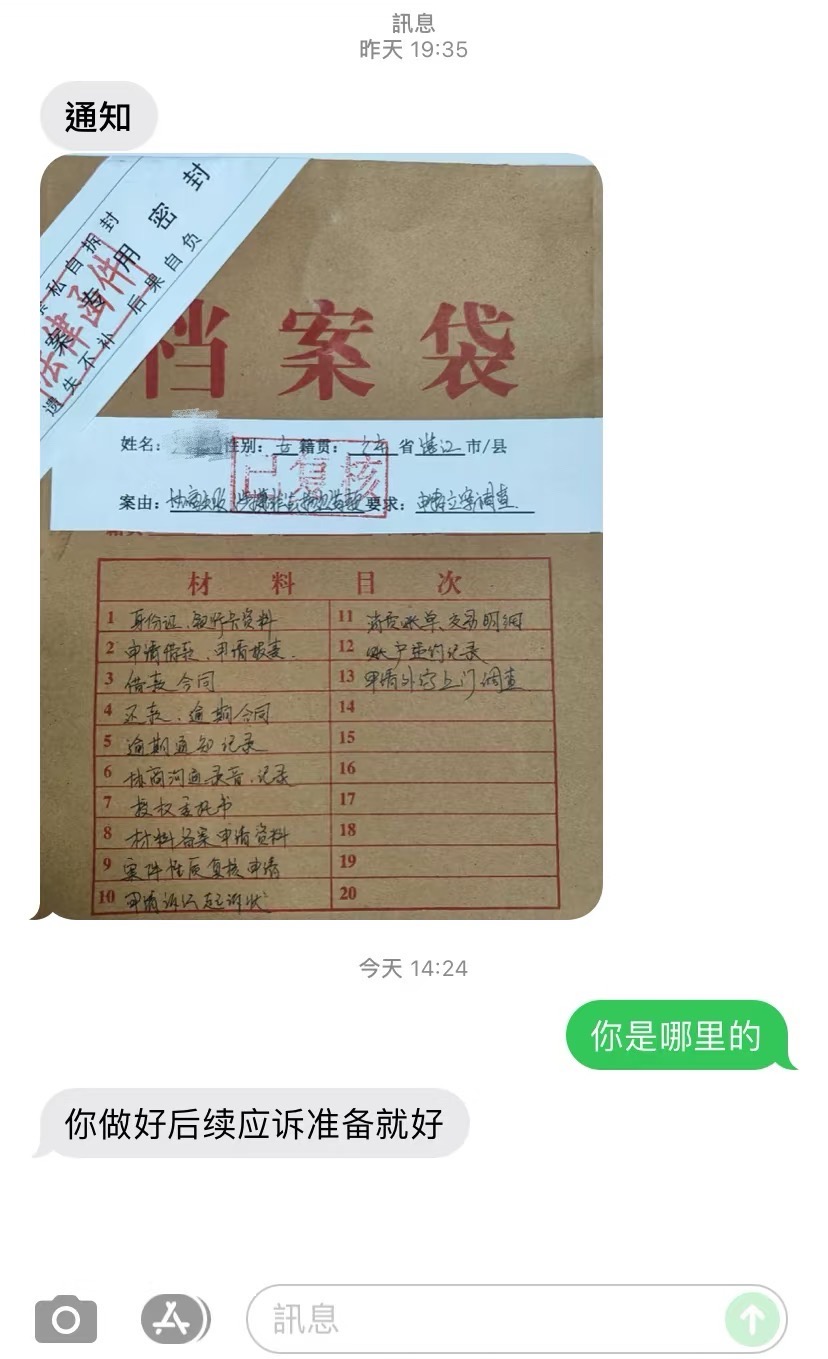 訊息
昨天 19:35
通知
密封
私自拆封
案专用
后果自负
遗失不补
法律函件
档案袋
姓名: 性别: 女 籍贯: 广东 省 湛江 市/县
已复核
案由: 要求: 申请立案调查
材料目次
1 身份证、银行卡资料
2 申请借款、申请报表.
3 借款合同
4 还款、逾期合同
5 逾期通知记录
6 协商沟通录音、记录
7 授权委托书
8 材料备案申请资料
9 案件性质复核申请
10 申请诉讼起诉状
11 消费账单、交易明细
12 账户违约记录
13 申请外访上门调查
14
15
16
17
18
19
20
今天 14:24
你是哪里的
你做好后续应诉准备就好
訊息